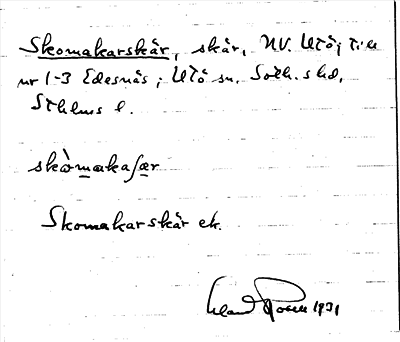 Skomakarskär, skär, NV. Utö; till
nr 1-3 Edesnäs; Utö sn. Soth. skd,
Sthlms l.
skò̀makaʃær
Skomakarskär ek.
1931